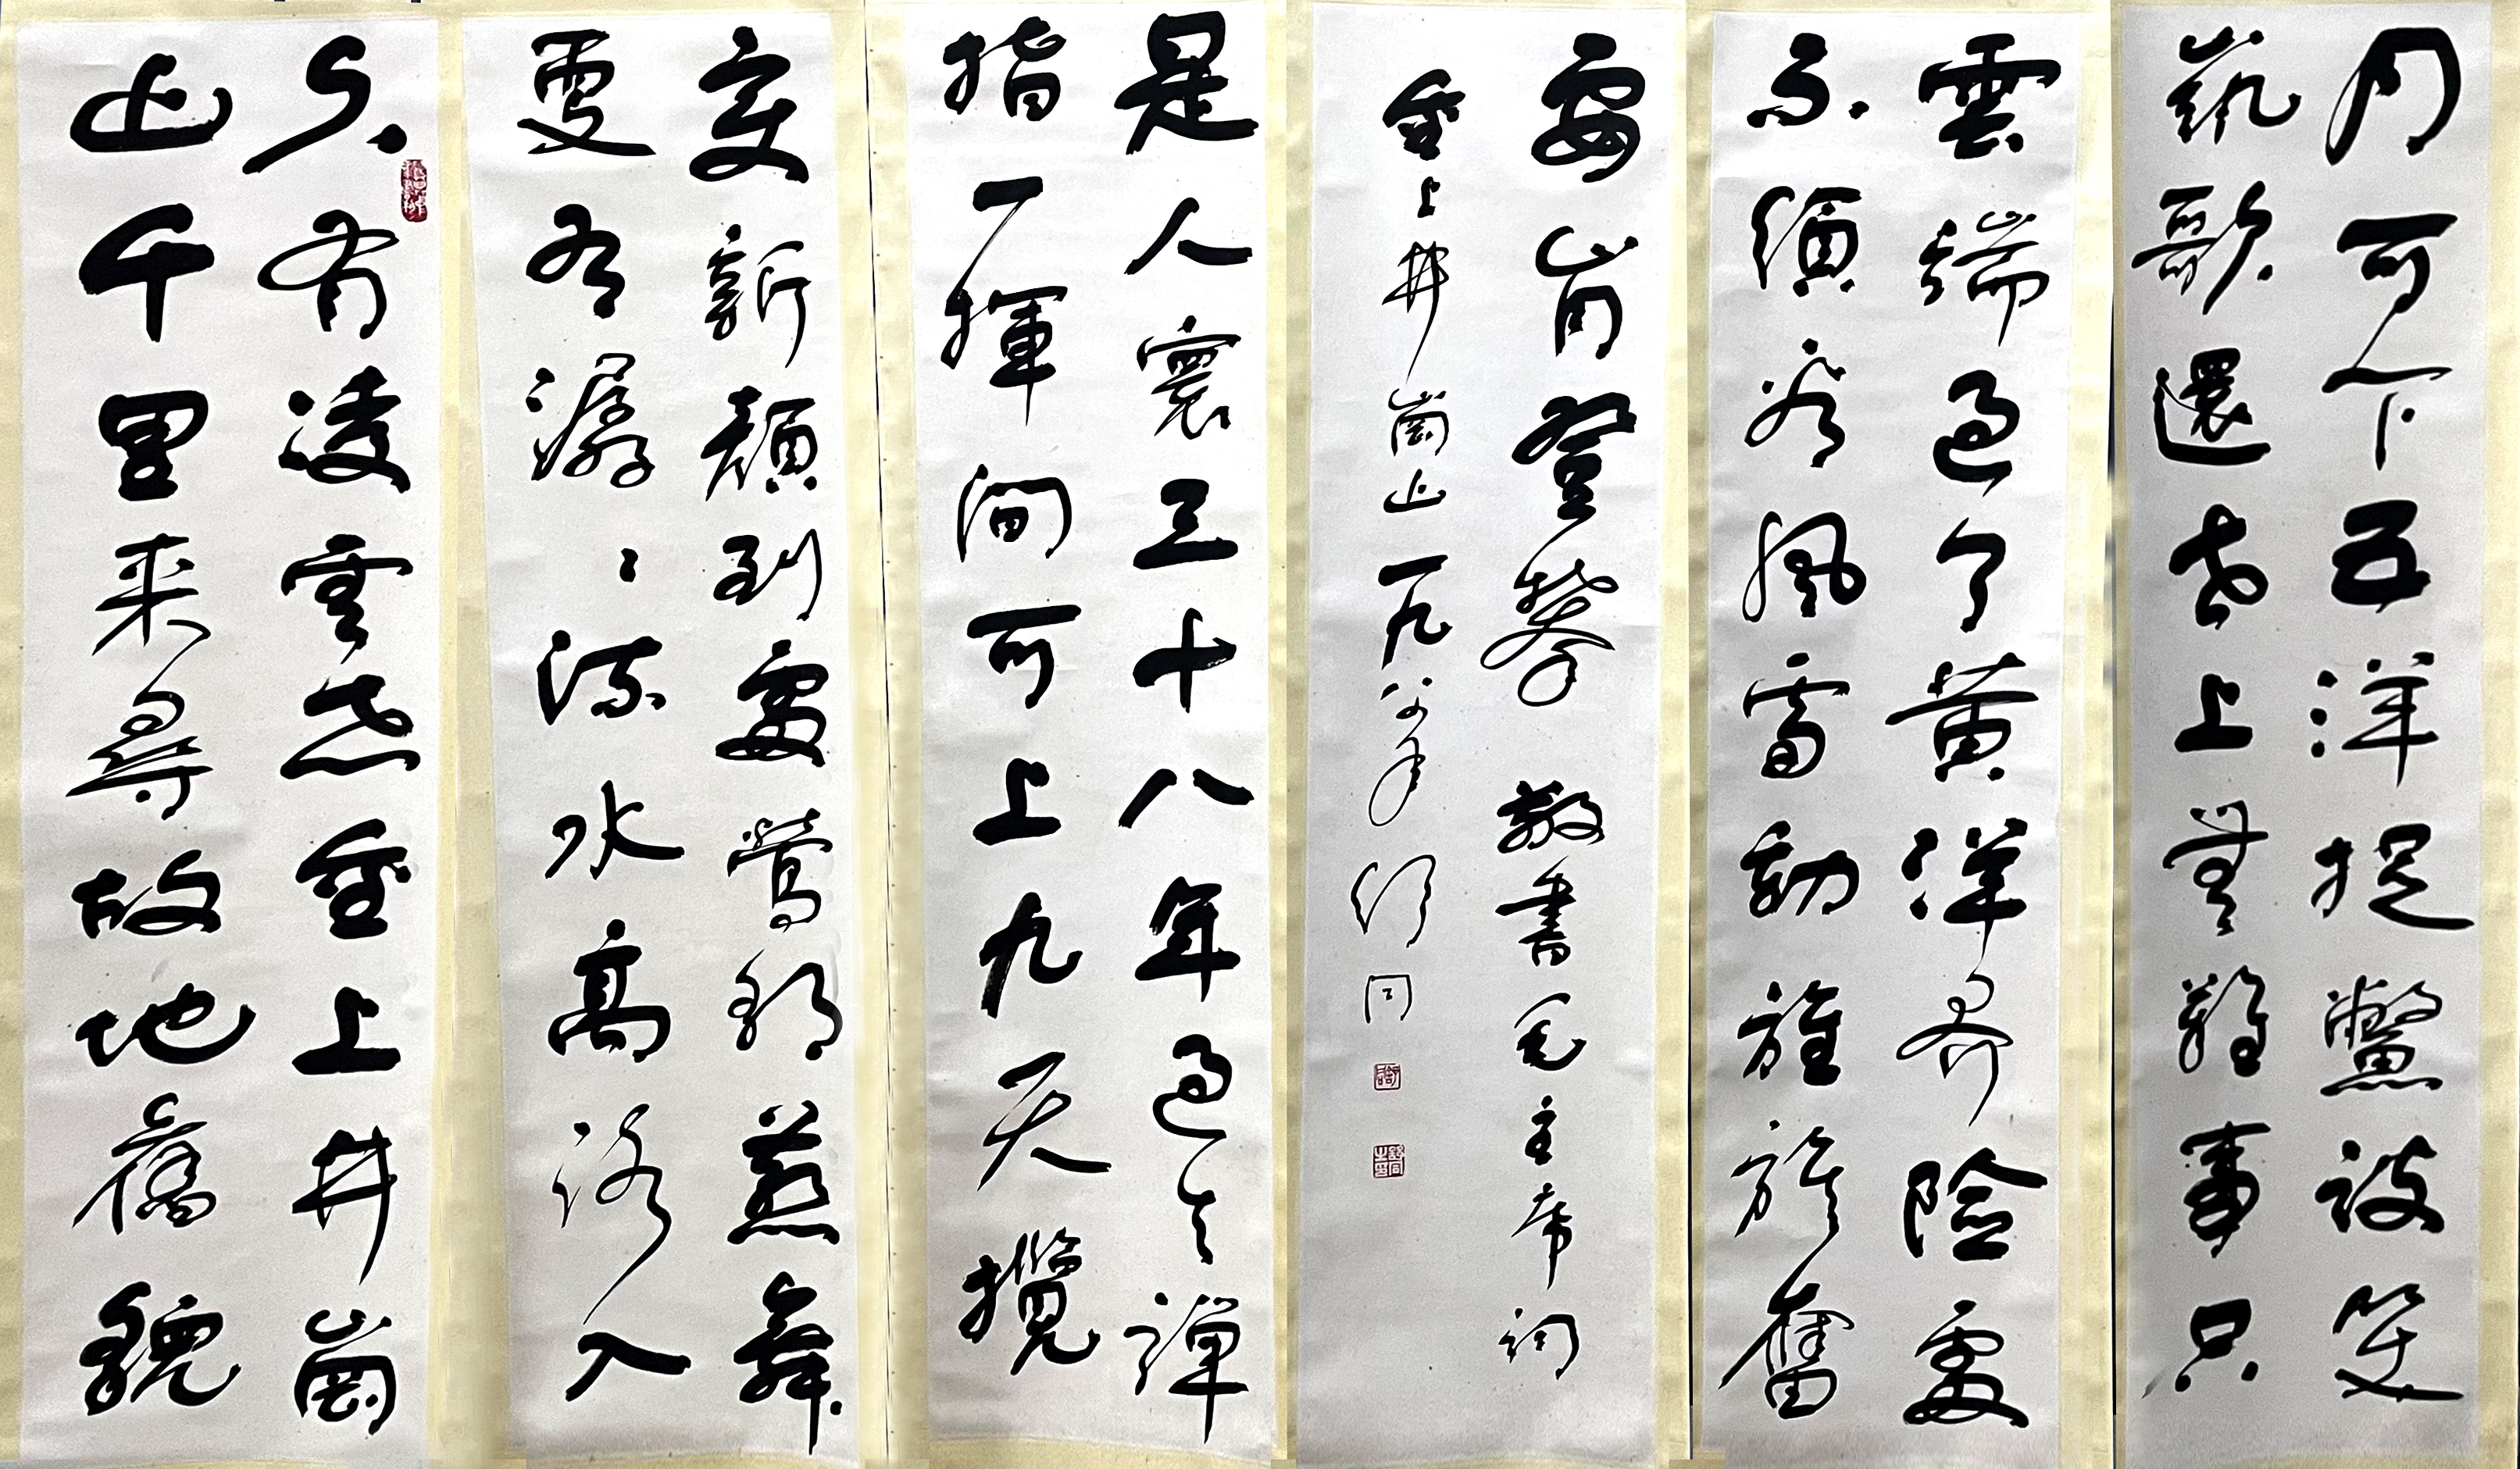 久有凌雲志重上井崗
山千里来尋故地舊貌
變新顔到處鶯歌燕舞
更有潺〻流水高路入
雲端過了黄洋界險處
不須看風雷動旌旗奮
是人寰三十八年過去彈
指一揮間可上九天攬
月可下五洋捉鱉談笑
凱歌還世上無難事只
要肯登攀 敬書毛主席詞
重上井崗山 一九八年 舒同